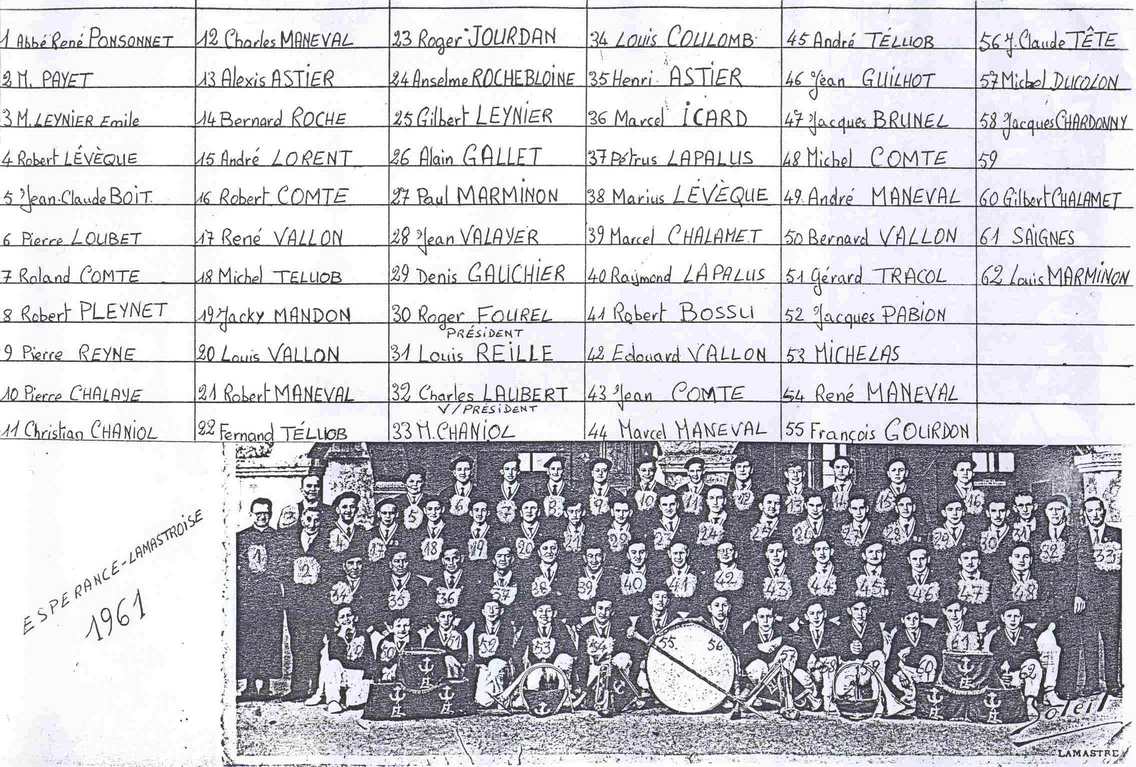 1 Abbé René PONSONNET
2 M. PAYET
3 M. LEYNIER Emile
4 Robert LÉVÈQUE
5 Jean-Claude BOIT.
6 Pierre LOUBET
7 Roland COMTE
8 Robert PLEYNET
9 Pierre REYNE
10 Pierre CHALAYE
11 Christian CHANIOL
12 Charles MANEVAL
13 Alexis ASTIER
14 Bernard ROCHE
15 André LORENT
16 Robert COMTE
17 René VALLON
18 Michel TELUOB
19 Jacky MANDON
20 Louis VALLON
21 Robert MANEVAL
22 Fernand TÉLUOB
23 Roger JOURDAN
24 Anselme ROCHEBLOINE
25 Gilbert LEYNIER
26 Alain GALLET
27 Paul MARMINON
28 Jean VALAYER
29 Denis GAUCHIER
30 Roger FOUREL
PRÉSIDENT
31 Louis REILLE
32 Charles LAUBERT
V/PRÉSIDENT
33 M. CHANIOL
34 Louis COULOMB
35 Henri ASTIER
36 Marcel ICARD
37 Pétrus LAPALUS
38 Marius LÉVÈQUE
39 Marcel CHALAMET
40 Raymond LAPALUS
41 Robert BOSSU
42 Edouard VALLON
43 Jean COMTE
44 Marcel MANEVAL
45 André TÉLUOB
46 Jean GUILHOT
47 Jacques BRUNEL
48 Michel COMTE
49 André MANEVAL
50 Bernard VALLON
51 Gérard TRACOL
52 Jacques PABION
53 MICHELAS
54 René MANEVAL
55 François GOURDON
56 J. Claude TÊTE
57 Michel DUCOLON
58 Jacques CHARDONNY
59
60 Gilbert CHALAMET
61 SAIGNES
62 Louis MARMINON
ESPERANCE-LAMASTROISE
1961
5 7 8 10 12 13 14 15 16
1 2 17 18 19 20 21 27 24 28 29 30 31 32 33
35 36 38 39 40 41 42 43 44 45 46 47 48
52 53 54 55 56 61
Soleil
LAMASTRE